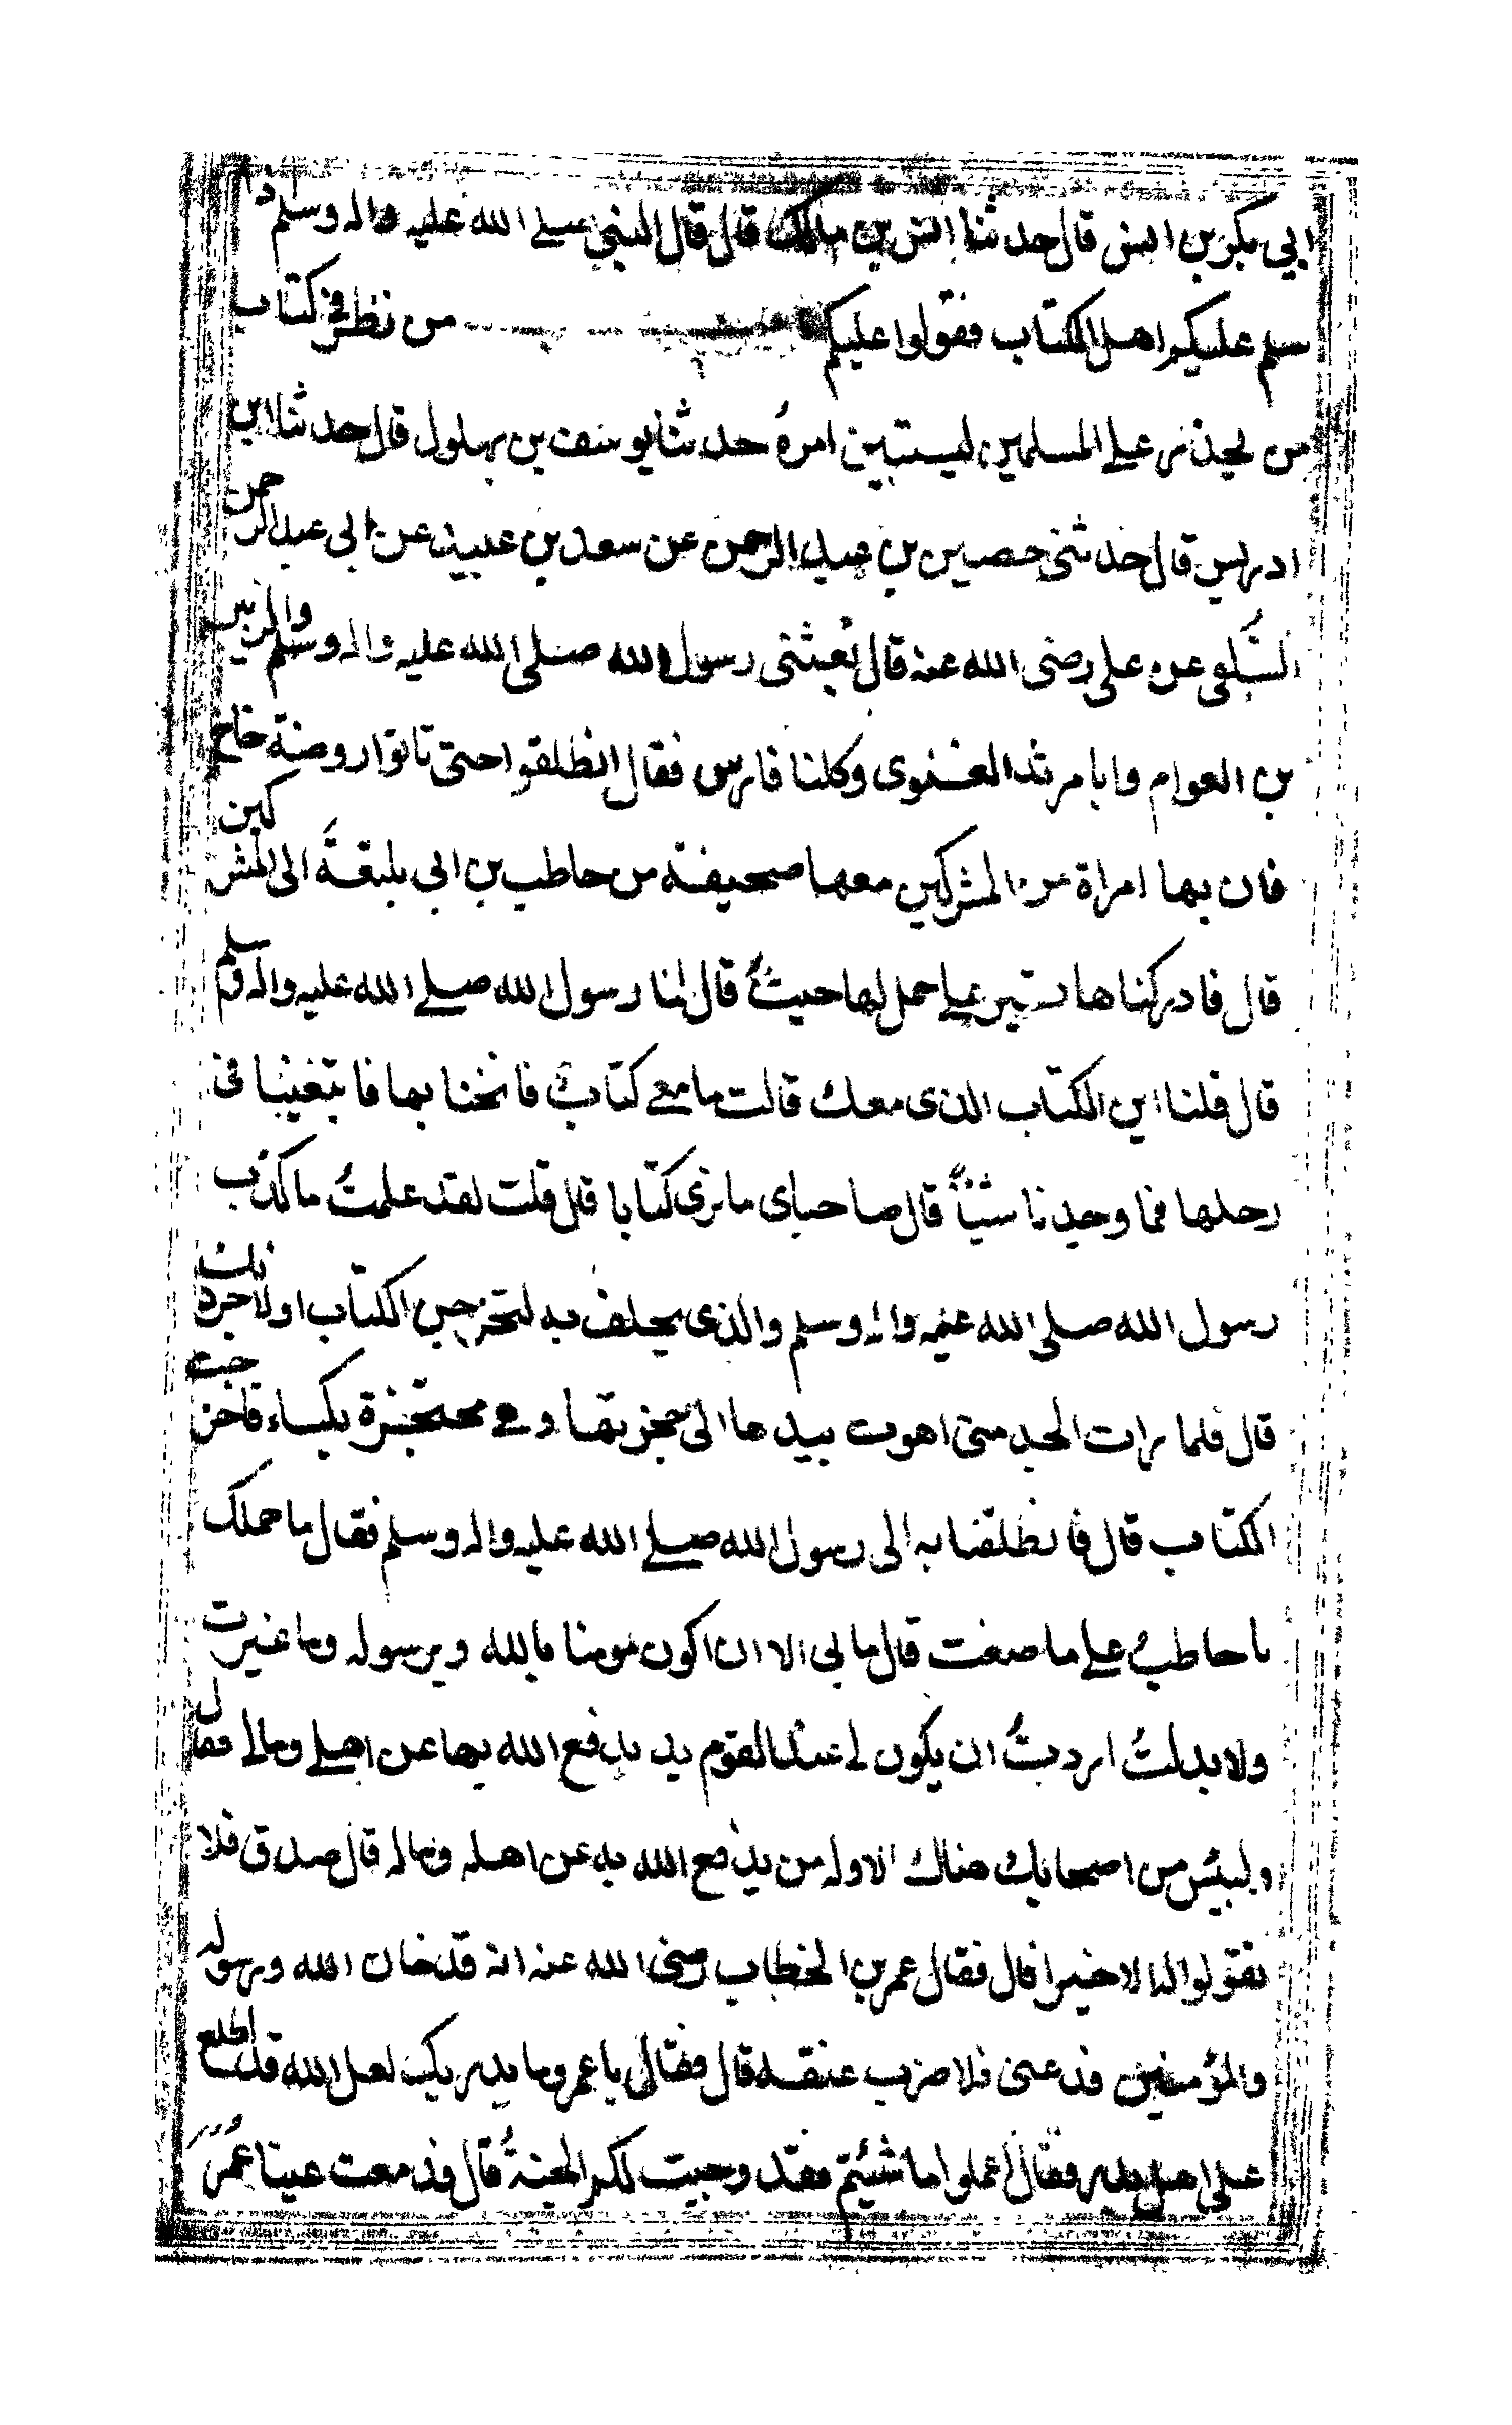 ابي بكر بن انس قال حدثنا انس بن مالك قال قال النبي صلے الله عليه واله وسلم اذا
سلم عليكم اهل الكتاب فقولوا عليكم من نظر في كتاب
من يحذر علے المسلمين ليستبين امرهُ حدثنا يوسف بن بهلول قال حدثنا ابن
ادريس قال حدثني حصين بن عبد الرحمن عن سعد بن عبيدة عن ابي عبد الرحمن
السُّلمي عن علي رضى الله عنه قال بُعثني رسول الله صلى الله عليه واله وسلم والزبير
بن العوام وابا مرثد الغنوى وكلنا فارس فقال انطلقوا حتى تاتوا روضة خاخ
فان بها امراة من المشركين معها صحيفة من حاطب بن ابي بلتعةَ الى المشركين
قال فادركناها تسير علے جمل لها حيثُ قال لنا رسول الله صلے الله عليه واله وسلم
قال قلنا اين الكتاب الذى معك قالت ما معے كتابٌ فانخنا بها فابتغينا فى
رحلها فما وجدنا شيئاً قال صاحباى ما نرى كتابا قال قلت لقد علمتُ ما كذب
رسول الله صلى الله عليه واله وسلم والذى يحلف به لتخرجن الكتاب او لاجردنك
قال فلما رات الجد منى اهوت بيدها الى حجزتها وهے محتجزة بكساء فاخرجت
الكتاب قال فانطلقنا به الى رسول الله صلے الله عليه واله وسلم فقال ما حملك
يا حاطبُ علے ما صنعت قال ما بى الا ان اكون مومنا بالله وبرسوله وما غيرت
ولا بدلتُ اردتُ ان يكون لے عند القوم يد يدفع الله بها عن اهلے ومالے فقال
وليس من اصحابك هناك الا وله من يدفع الله به عن اهله وماله قال صدق فلا
تقولوا له الا خيرا قال فقال عمر بن الخطاب رضى الله عنه انه قد خان الله ورسوله
والمؤمنين فدعنى فلاضرب عنقه قال فقال يا عمر وما يدريك لعل الله قد اطلع
على اهل بدر فقال اعملوا ما شئتم فقد وجبت لكم الجنةُ قال فدمعت عينا عُمَر